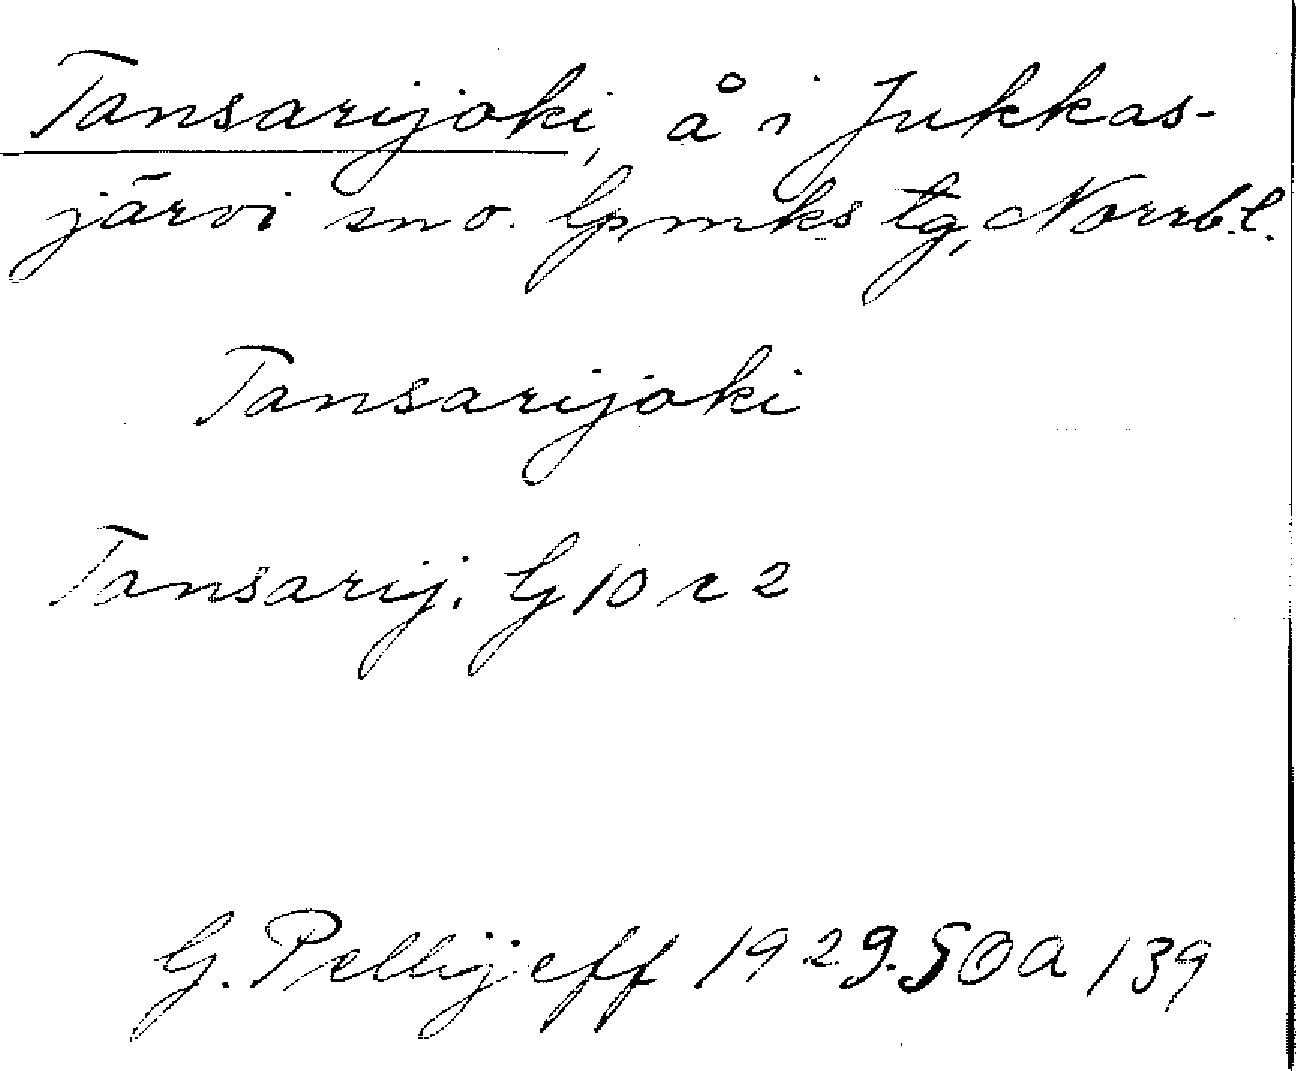 Tansarijoki, å i Jukkas-
järvi sn o. lpmks tg, Norrb.l.
Tansarijoki
Tansarij. G 10 r 2
G. Pellijeff 1929. SOA 139